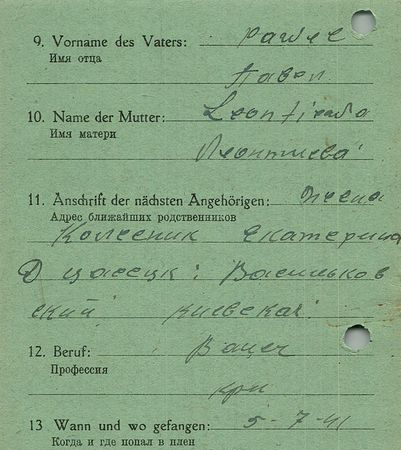 9. Vorname des Vaters: Pawel
Имя отца
Павел
10. Name der Mutter:
Имя матери
Леонтиева
11. Anschrift der nächsten Angehörigen: жена
Адрес ближайших родственников
Колесник Екатерина
Васильков
ский Киевская
12. Beruf: Bauer
Профессия
кре
13 Wann und wo gefangen: 5-7-41
Когда и где попал в плен